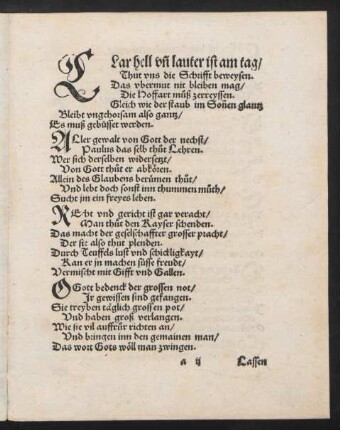 CLar hell vñ lauter ist am tag/
Thut vns die Schrifft beweysen.
Das vbermut nit bleiben mag/
Die Hoffart müß zerreyssen.
Gleich wie der staub im Soñen glantz
Bleibt vngehorsam also gantz/
Es muß gebüsset werden.
ALler gewalt von Gott der nechst/
Paulus das selb thüt Lehren.
Wer sich derselben widersetzt/
Von Gott thüt er abkören.
Allein des Glaubens berümen thüt/
Vnd lebt doch sonst inn thummen müth/
Sucht jm ein freyes leben.
REcht vnd gericht ist gar veracht/
Man thüt den Kayser schenden.
Das macht der geselschaffter grosser pracht/
Der sie also thut plenden.
Durch Teuffels lust vnd schickligkayt/
Kan er jn machen süsse freudt/
Vermischt mit Gifft vnd Gallen.
O Gott bedenck der grossen not/
Jr gewissen sind gefangen.
Sie treyben täglich grossen pot/
Vnd haben groß verlangen.
Wie sie vil auffrür richten an/
Vnd bringen inn den gemainen man/
Das wort Gots wöll man zwingen.
a ij Lassen